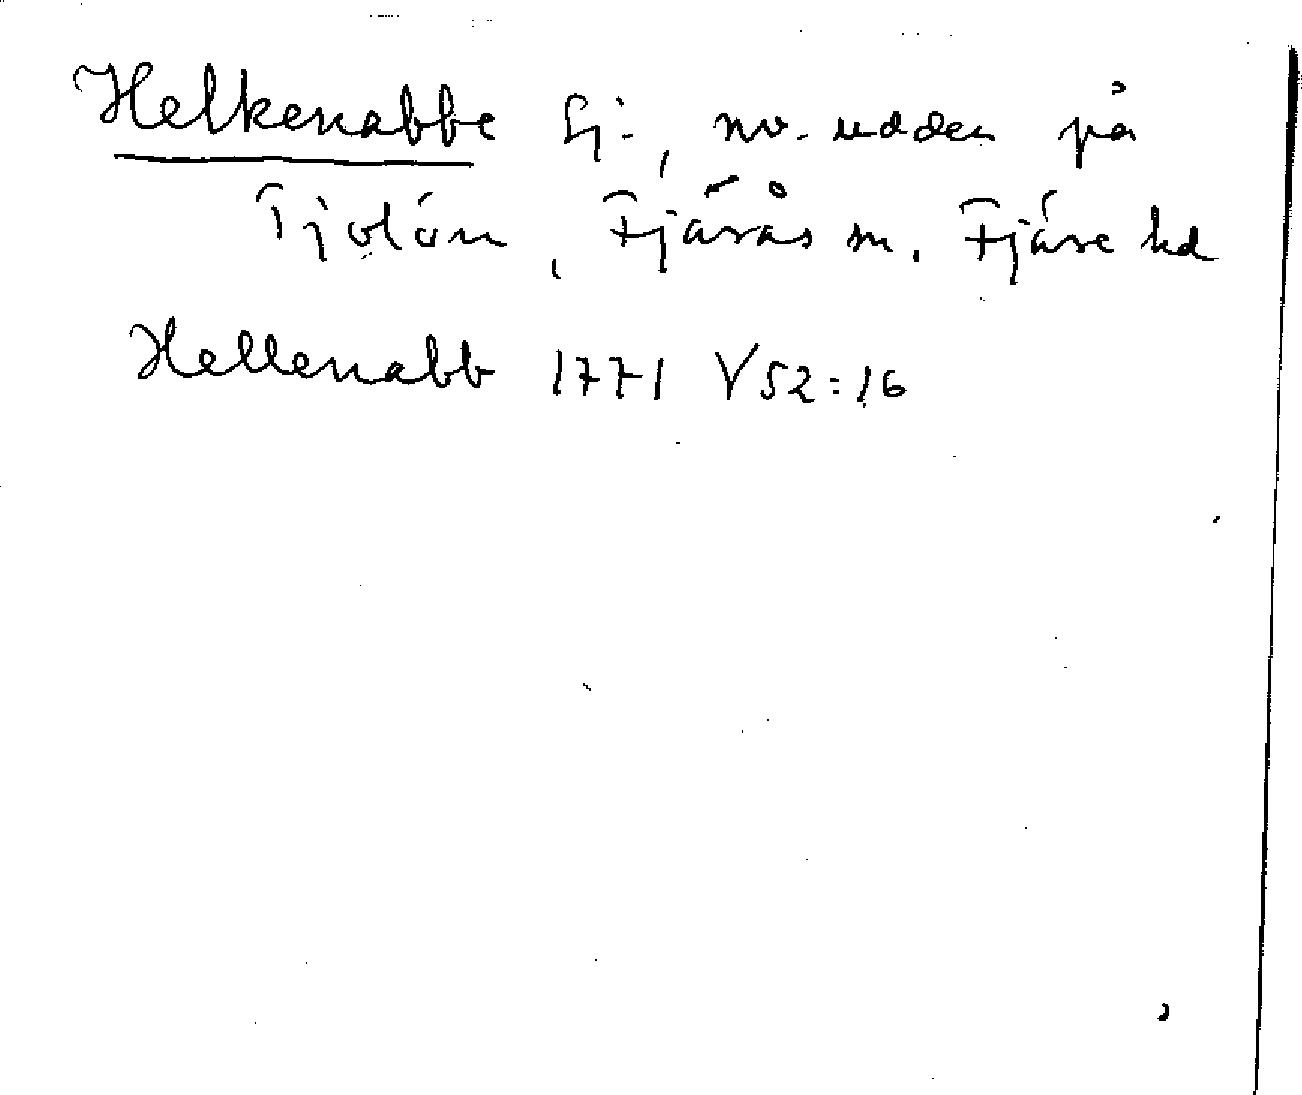 Helkenabbe Ej-, nv. udden på
Tjolön, Fjärås sn. Fjäre hd
Hellenabb 1771 V52:16